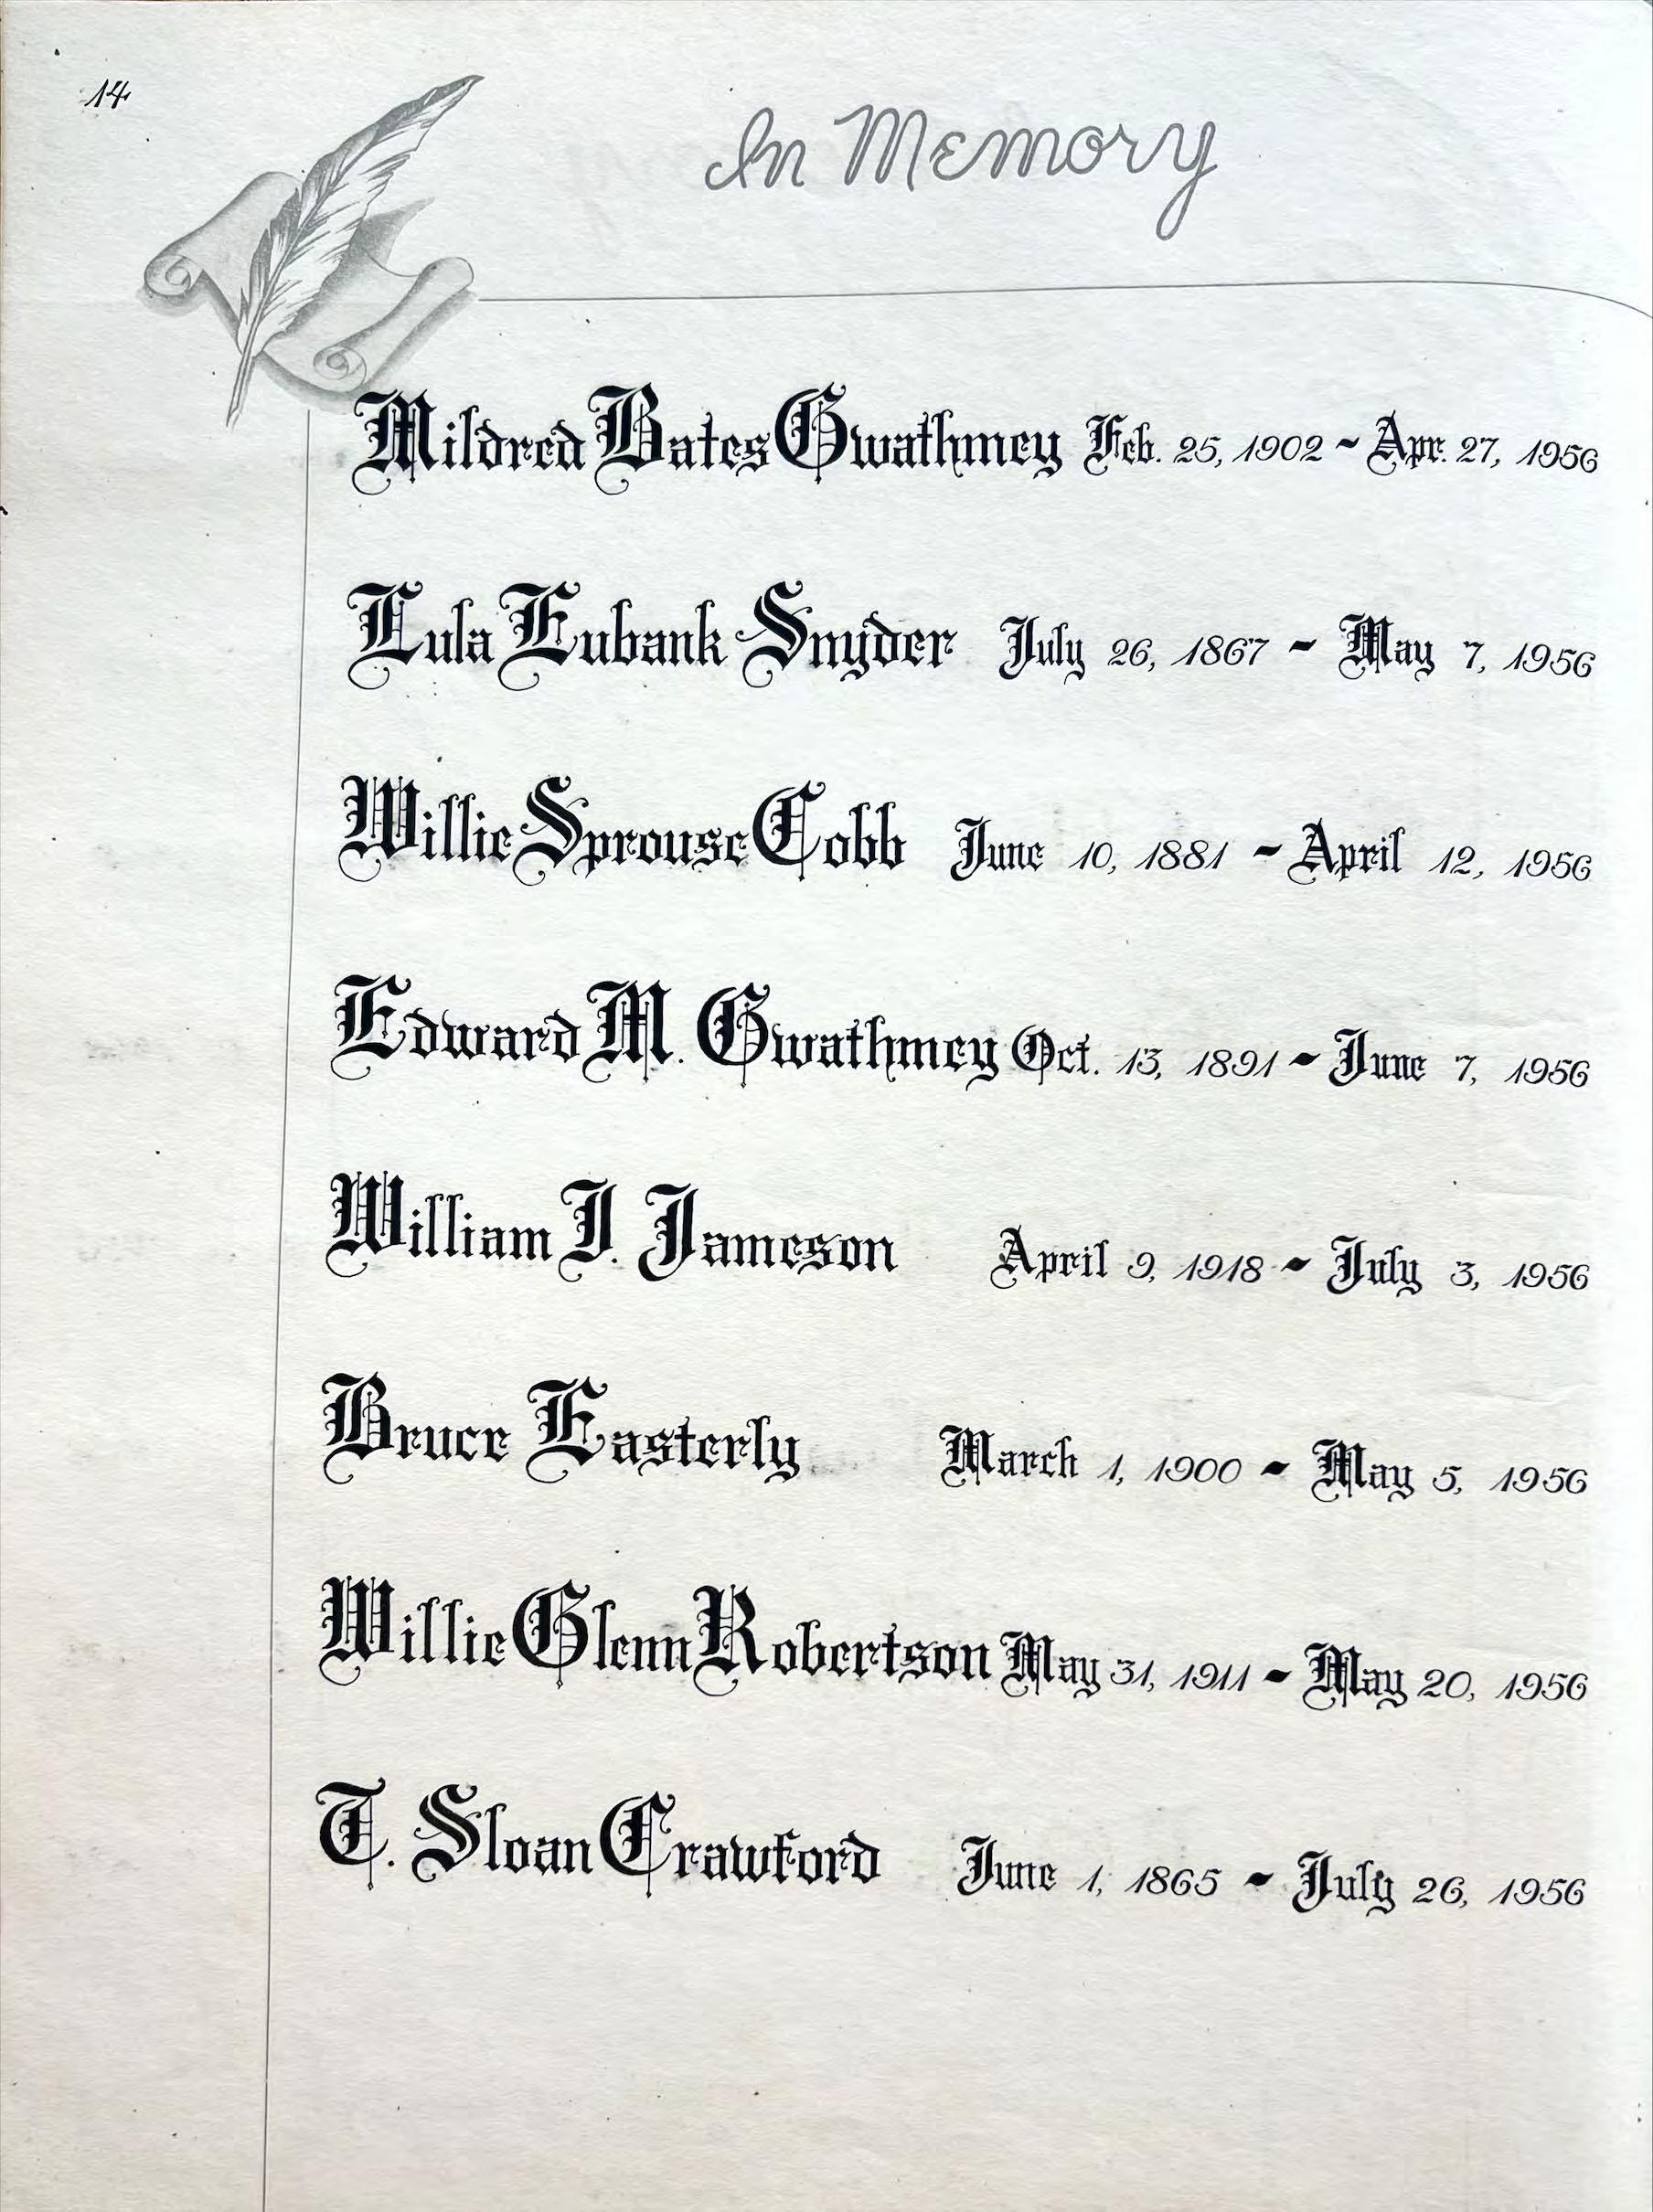 14
In Memory
Mildred Bates Gwathmey Feb. 25, 1902 ~ Apr. 27, 1956
Lula Eubank Snyder July 26, 1867 ~ May 7, 1956
Willie Sprouse Cobb June 10, 1881 ~ April 12, 1956
Edward M. Gwathmey Oct. 13, 1891 ~ June 7, 1956
William J. Jameson April 9, 1918 ~ July 3, 1956
Bruce Easterly March 1, 1900 ~ May 5, 1956
Willie Glenn Robertson May 31, 1911 ~ May 20, 1956
T. Sloan Crawford June 1, 1865 ~ July 26, 1956